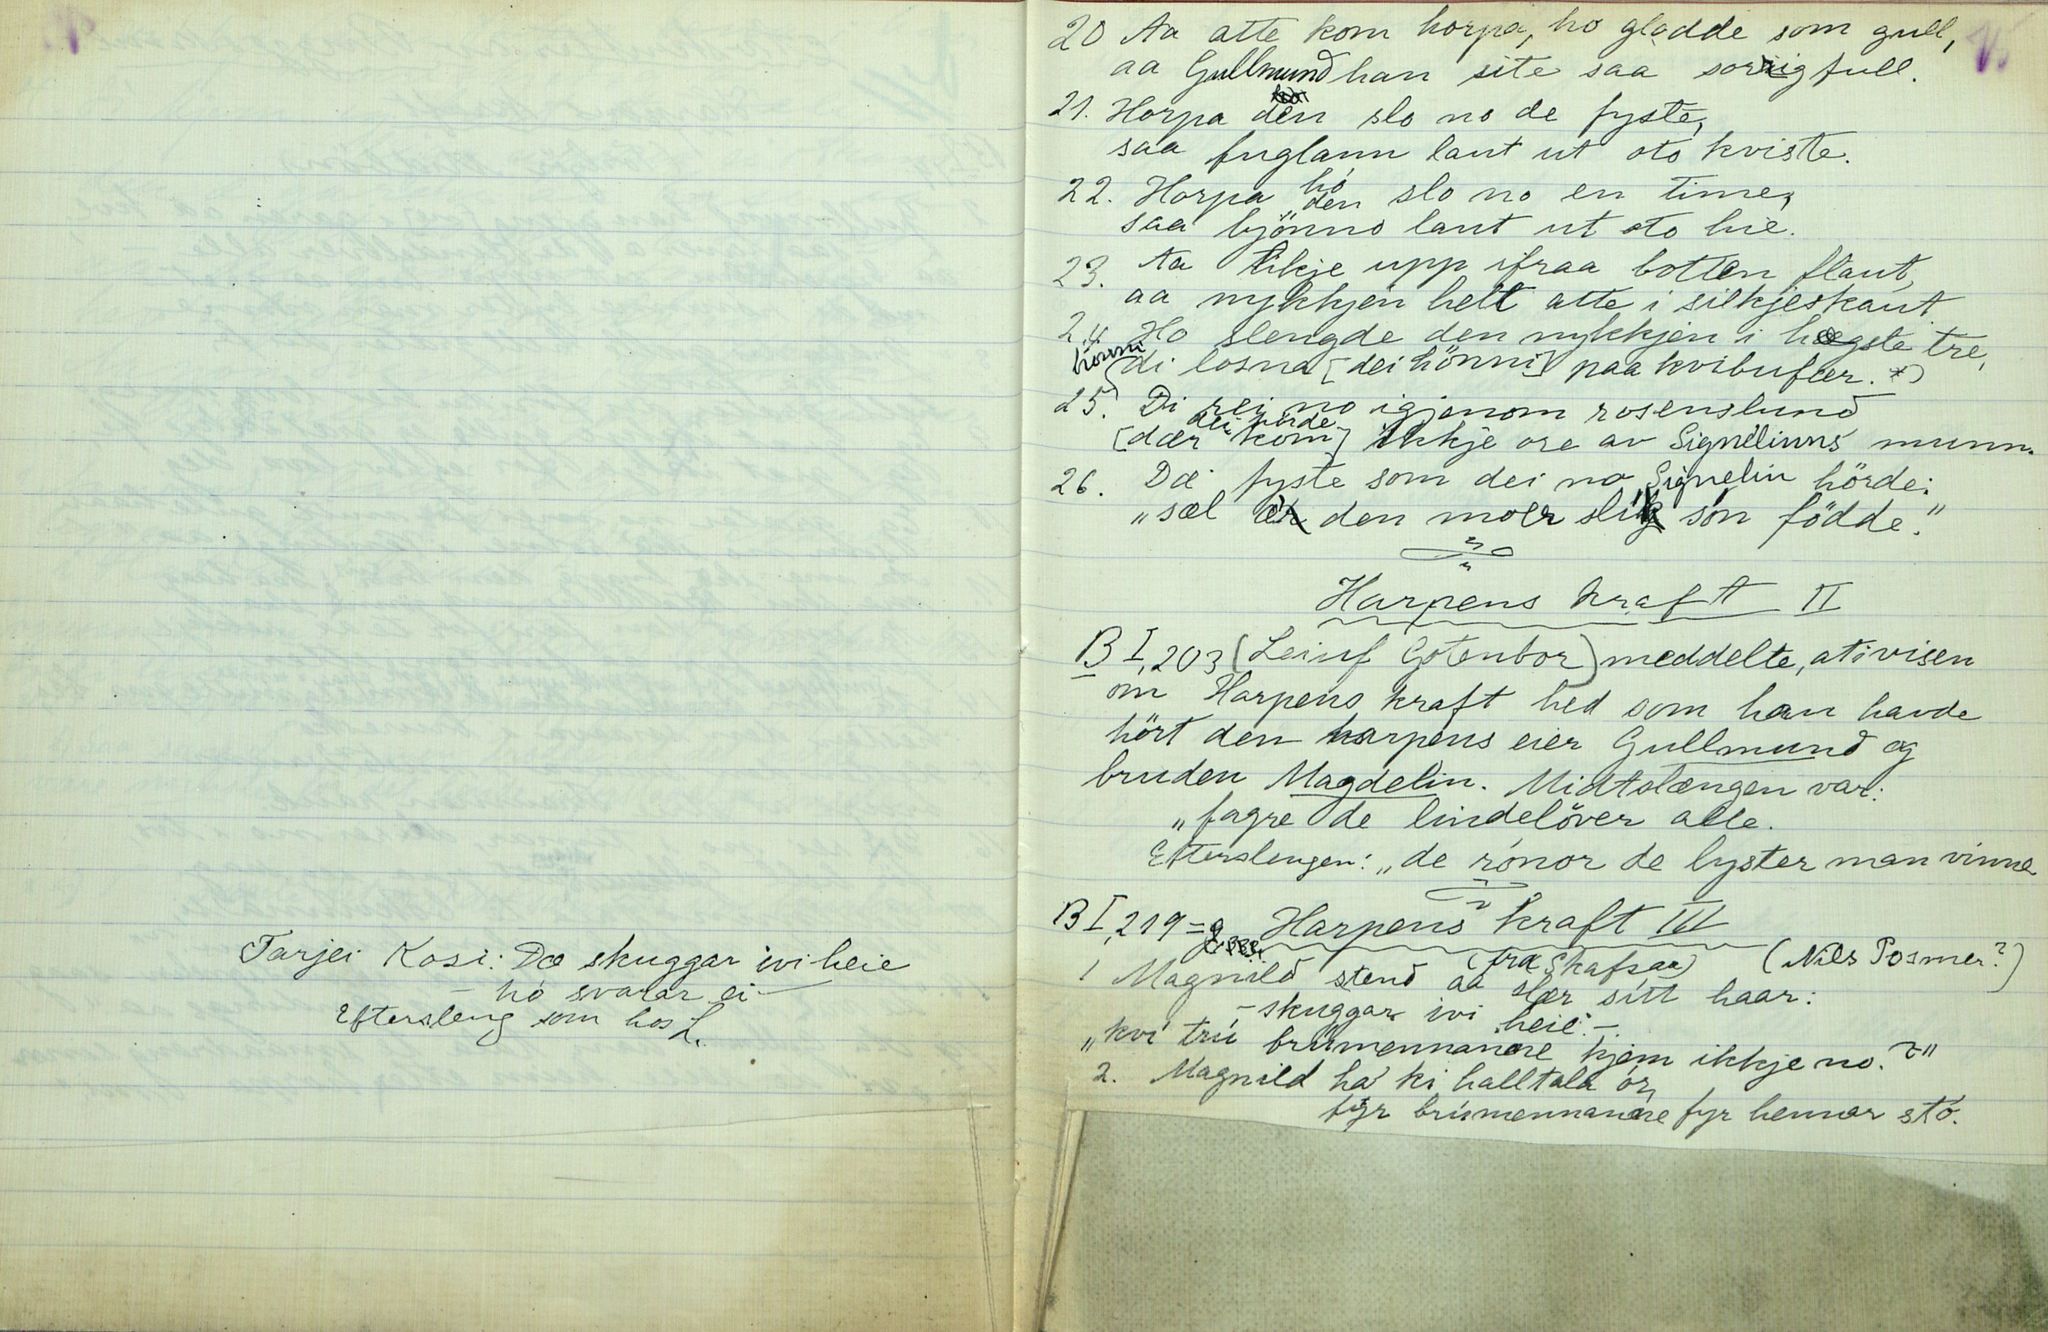 Tarjei Kosi: Dæ skuggar ivi heie
– hó svarar ei –
Eftersleng som hos L.
20 Aa atte kom horpa, ho glodde som gull,
aa Gullmund han site saa sorrigfull.
21. Horpa den slo no de fyste,
saa fuglann laut ut oto kviste.
22. Horpa hó den slo no en time,
saa bjönno laut ut oto hie.
23. Aa likje upp ifraa botten flaut,
aa nykkjen helt atte i silkjeskaut
24 Ho slengde den nykkjen i høgste tre,
hionni di losna [dei hönni] paa kvibuflær. *)
25. Di rei no igjenom rosenslund
dei hörde
[dær kom] ikkje ore av Signeliuns munn.
26. Dæ fyste som dei no Signelin hörde:
„sæl er den moer slik són födde."
Harpens kraft II
B I, 203 (Leiuf Gotenbor) meddelte, at i visen
om Harpens kraft hed som han havde
hört den harpens eier Gullmund og
bruden Magdelin. Midtslængen var:
„fagre de lindelöver alle.
Efterslengen: „de rónor de lyster man vinne
B I, 219 = g Harpens kraft III
(fra Skafsaa) (Nils Posmer?)
1 Magnild stend aa slær sitt haar:
– skuggar ivi heie –
„kví trú brúmennanare kjem ikkje no?"
2. Magnild ha' ki halltala ór,
fyr brúmennanare fyr hennar stó.